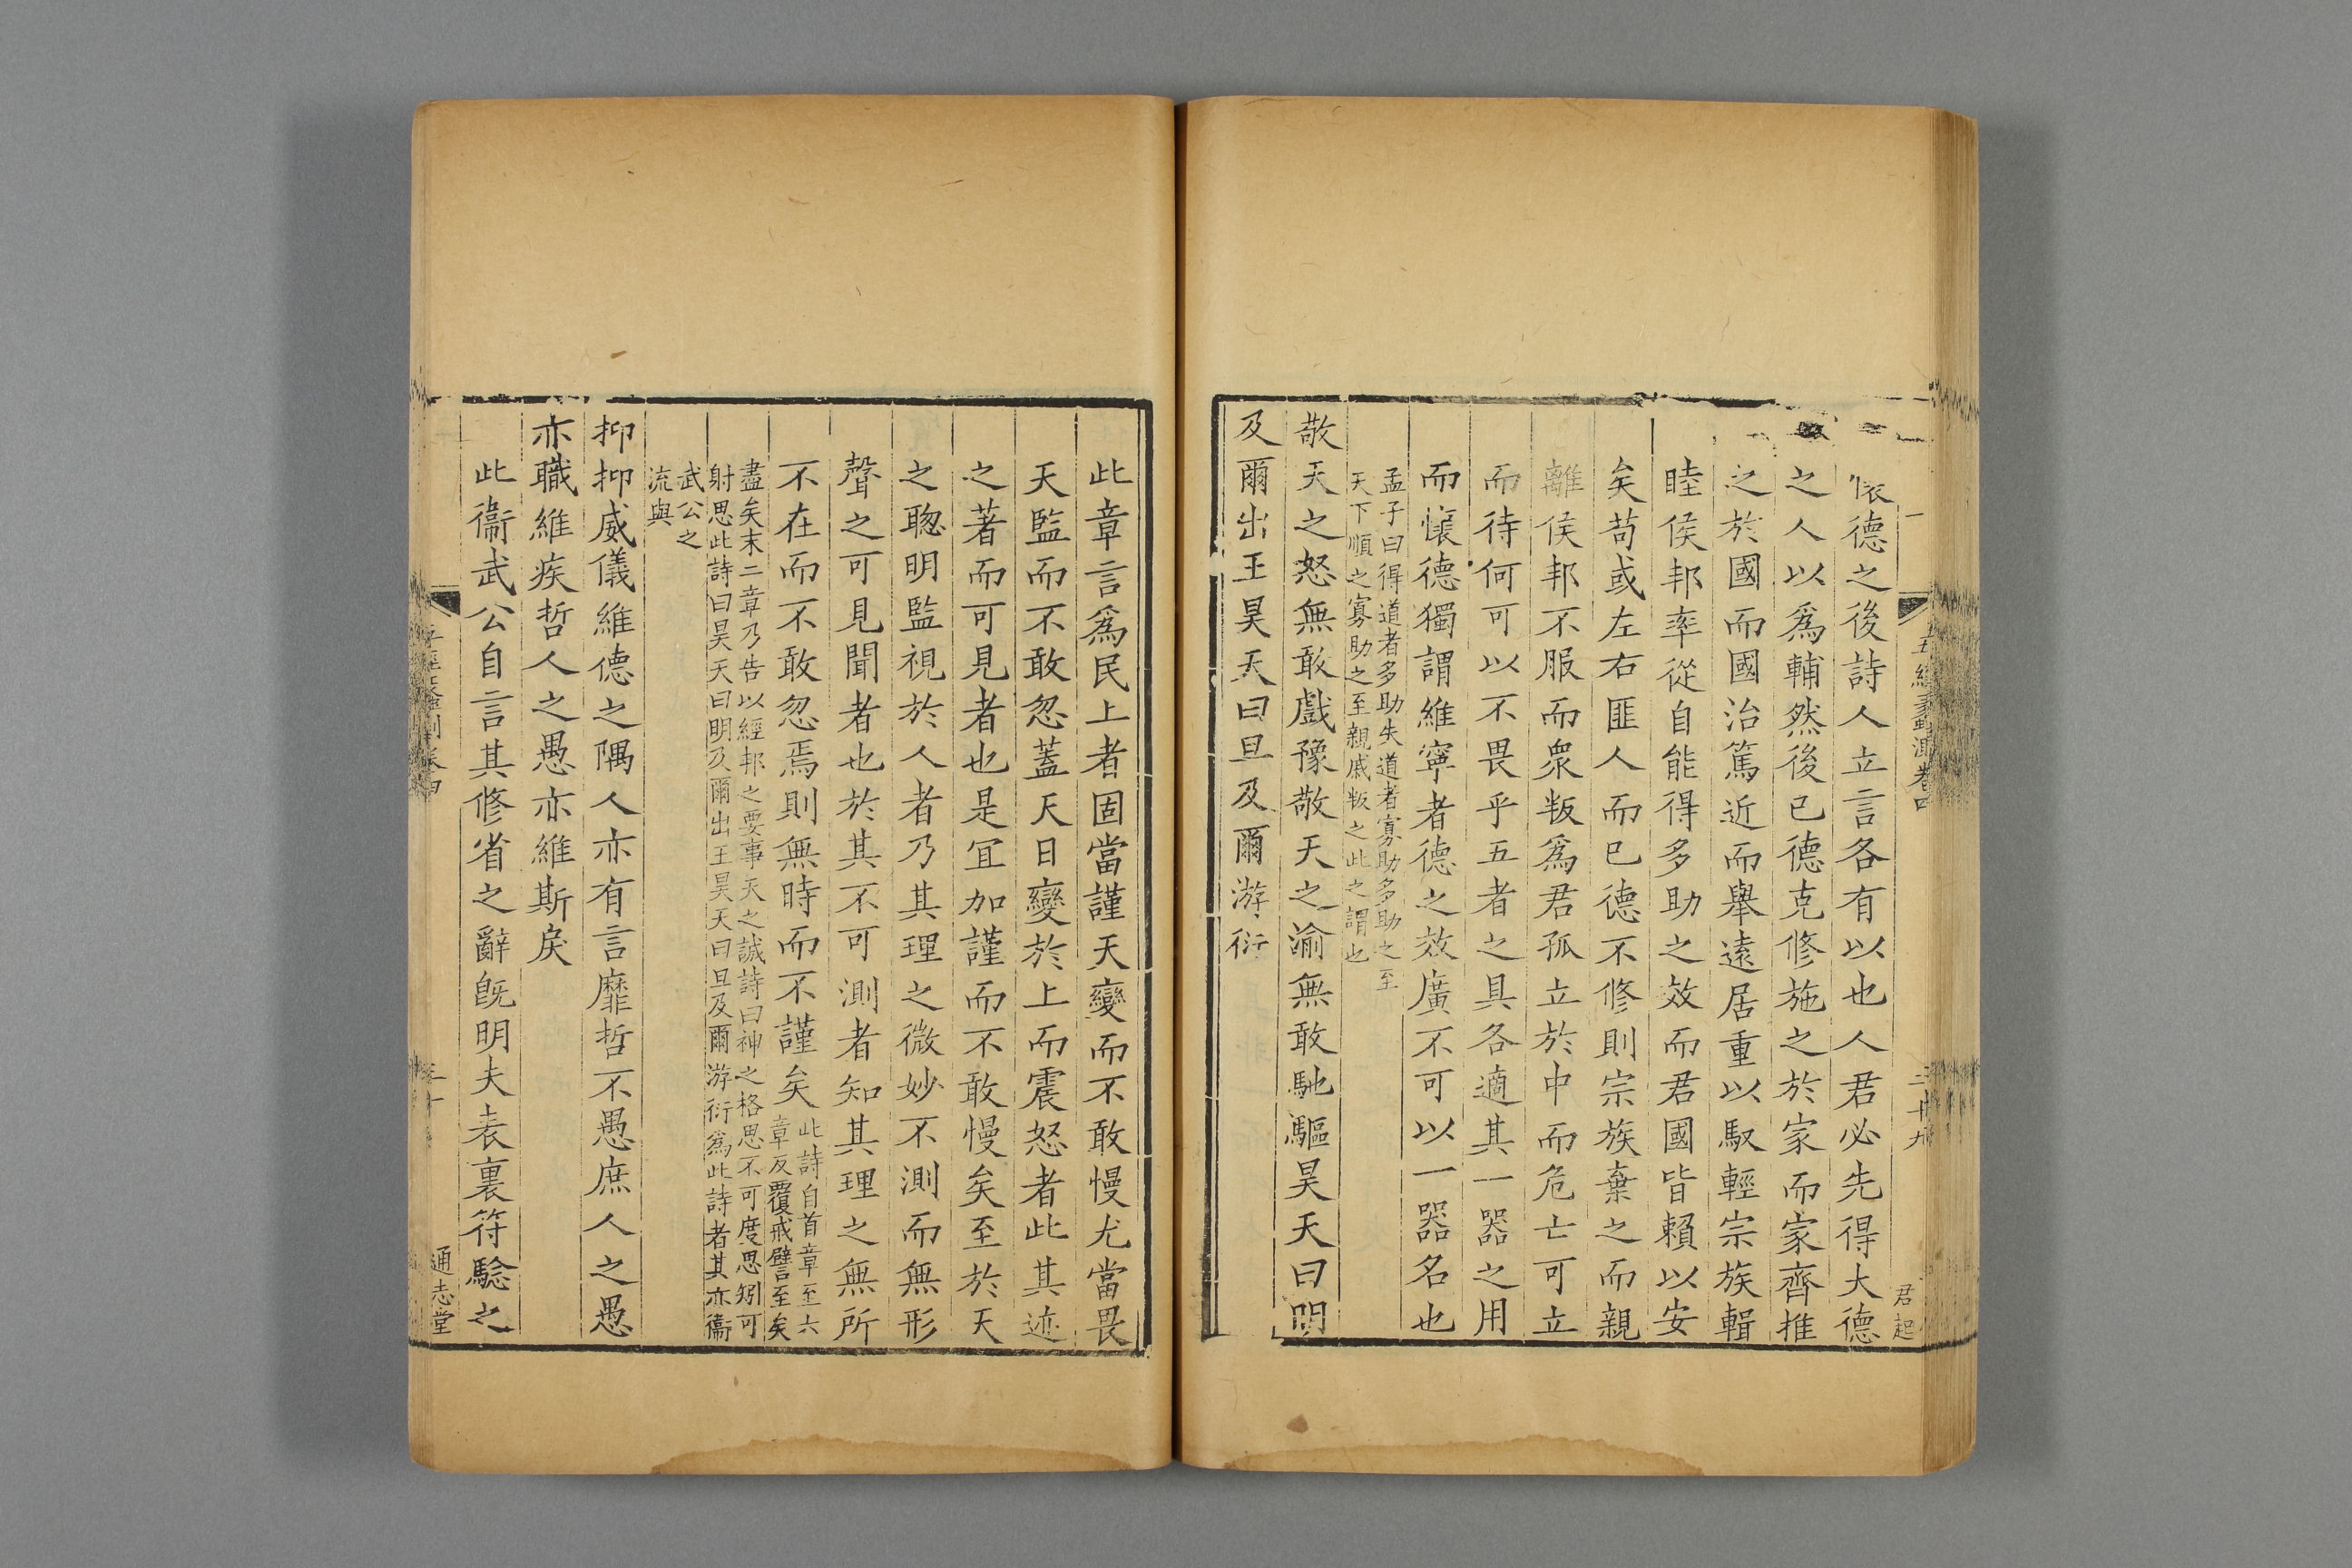 懷德之後詩人立言各有以也人君必先得大德
之人以爲輔然後已德克修施之於家而家齊推
之於國而國治篤近而舉遠居重以馭輕宗族輯
睦侯邦率從自能得多助之效而君國皆賴以安
矣苟或左右匪人而已德不修則宗族棄之而親
離侯邦不服而衆叛爲君孤立於中而危亡可立
而待何可以不畏乎五者之具各適其一器之用
而懷德獨謂維寧者德之效廣不可以一器名也
孟子曰得道者多助失道者寡助多助之至
天下順之寡助之至親戚叛之此之謂也
敬天之怒無敢戲豫敬天之渝無敢馳驅昊天曰明
及爾出王昊天曰旦及爾游衍
五經蠡測卷四
三十九
君起
此章言爲民上者固當謹天變而不敢慢尤當畏
天監而不敢忽蓋天日變於上而震怒者此其迹
之著而可見者也是宜加謹而不敢慢矣至於天
之聰明監視於人者乃其理之微妙不測而無形
聲之可見聞者也於其不可測者知其理之無所
不在而不敢忽焉則無時而不謹矣
此詩自首章至六
章反覆戒譬至矣
盡矣末二章乃告以經邦之要事天之誠詩曰神之格思不可度思矧可
射思此詩曰昊天曰明及爾出王昊天曰旦及爾游衍爲此詩者其亦衞
武公之
流與
抑抑威儀維德之隅人亦有言靡哲不愚庶人之愚
亦職維疾哲人之愚亦維斯戾
此衞武公自言其修省之辭旣明夫表裏符驗之
通志堂